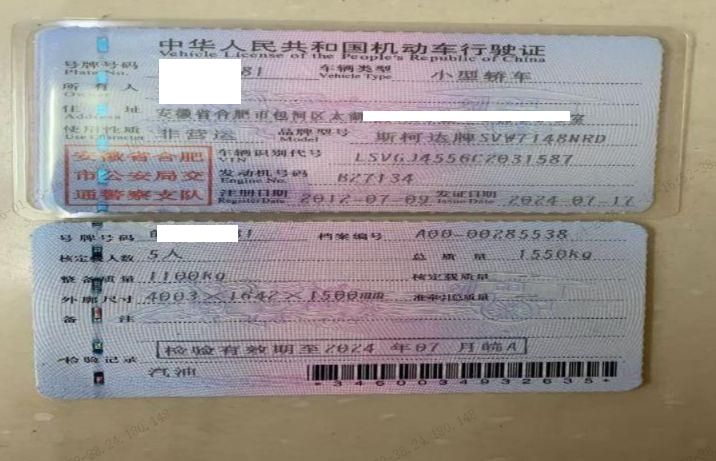 中华人民共和国机动车行驶证
Vehicle License of the People's Republic of China
号牌号码 81 车辆类型 小型轿车
Plate No. Vehicle Type
所有人
Owner
住址 安徽省合肥市包河区太湖 室
Address
使用性质 非营运 品牌型号 斯柯达牌SVW7148NRD
Use Character Model
安徽省合肥市公安局交通警察支队
车辆识别代号 LSVGJ4556C2031587
VIN
发动机号码 B27134
Engine No.
注册日期 2012-07-09 发证日期 2024-07-17
Register Date Issue Date
号牌号码 81 档案编号 A00-00285538
核定载人数 5人 总质量 1550kg
整备质量 1100kg 核定载质量
外廓尺寸 4003×1642×1500mm 准牵引总质量
备注
检验有效期至2024年07月皖A
检验记录
汽油
*3460034932635*